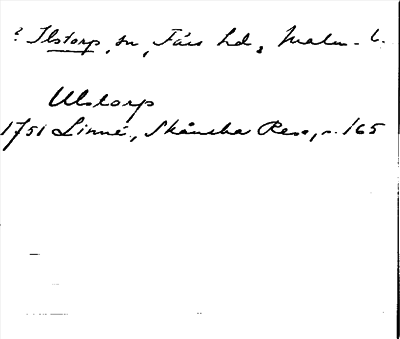 ? Ilstorp, sn, Färs hd, Malm. l.
Ulstorp
1751 Linné, Skånska Resa, s. 165